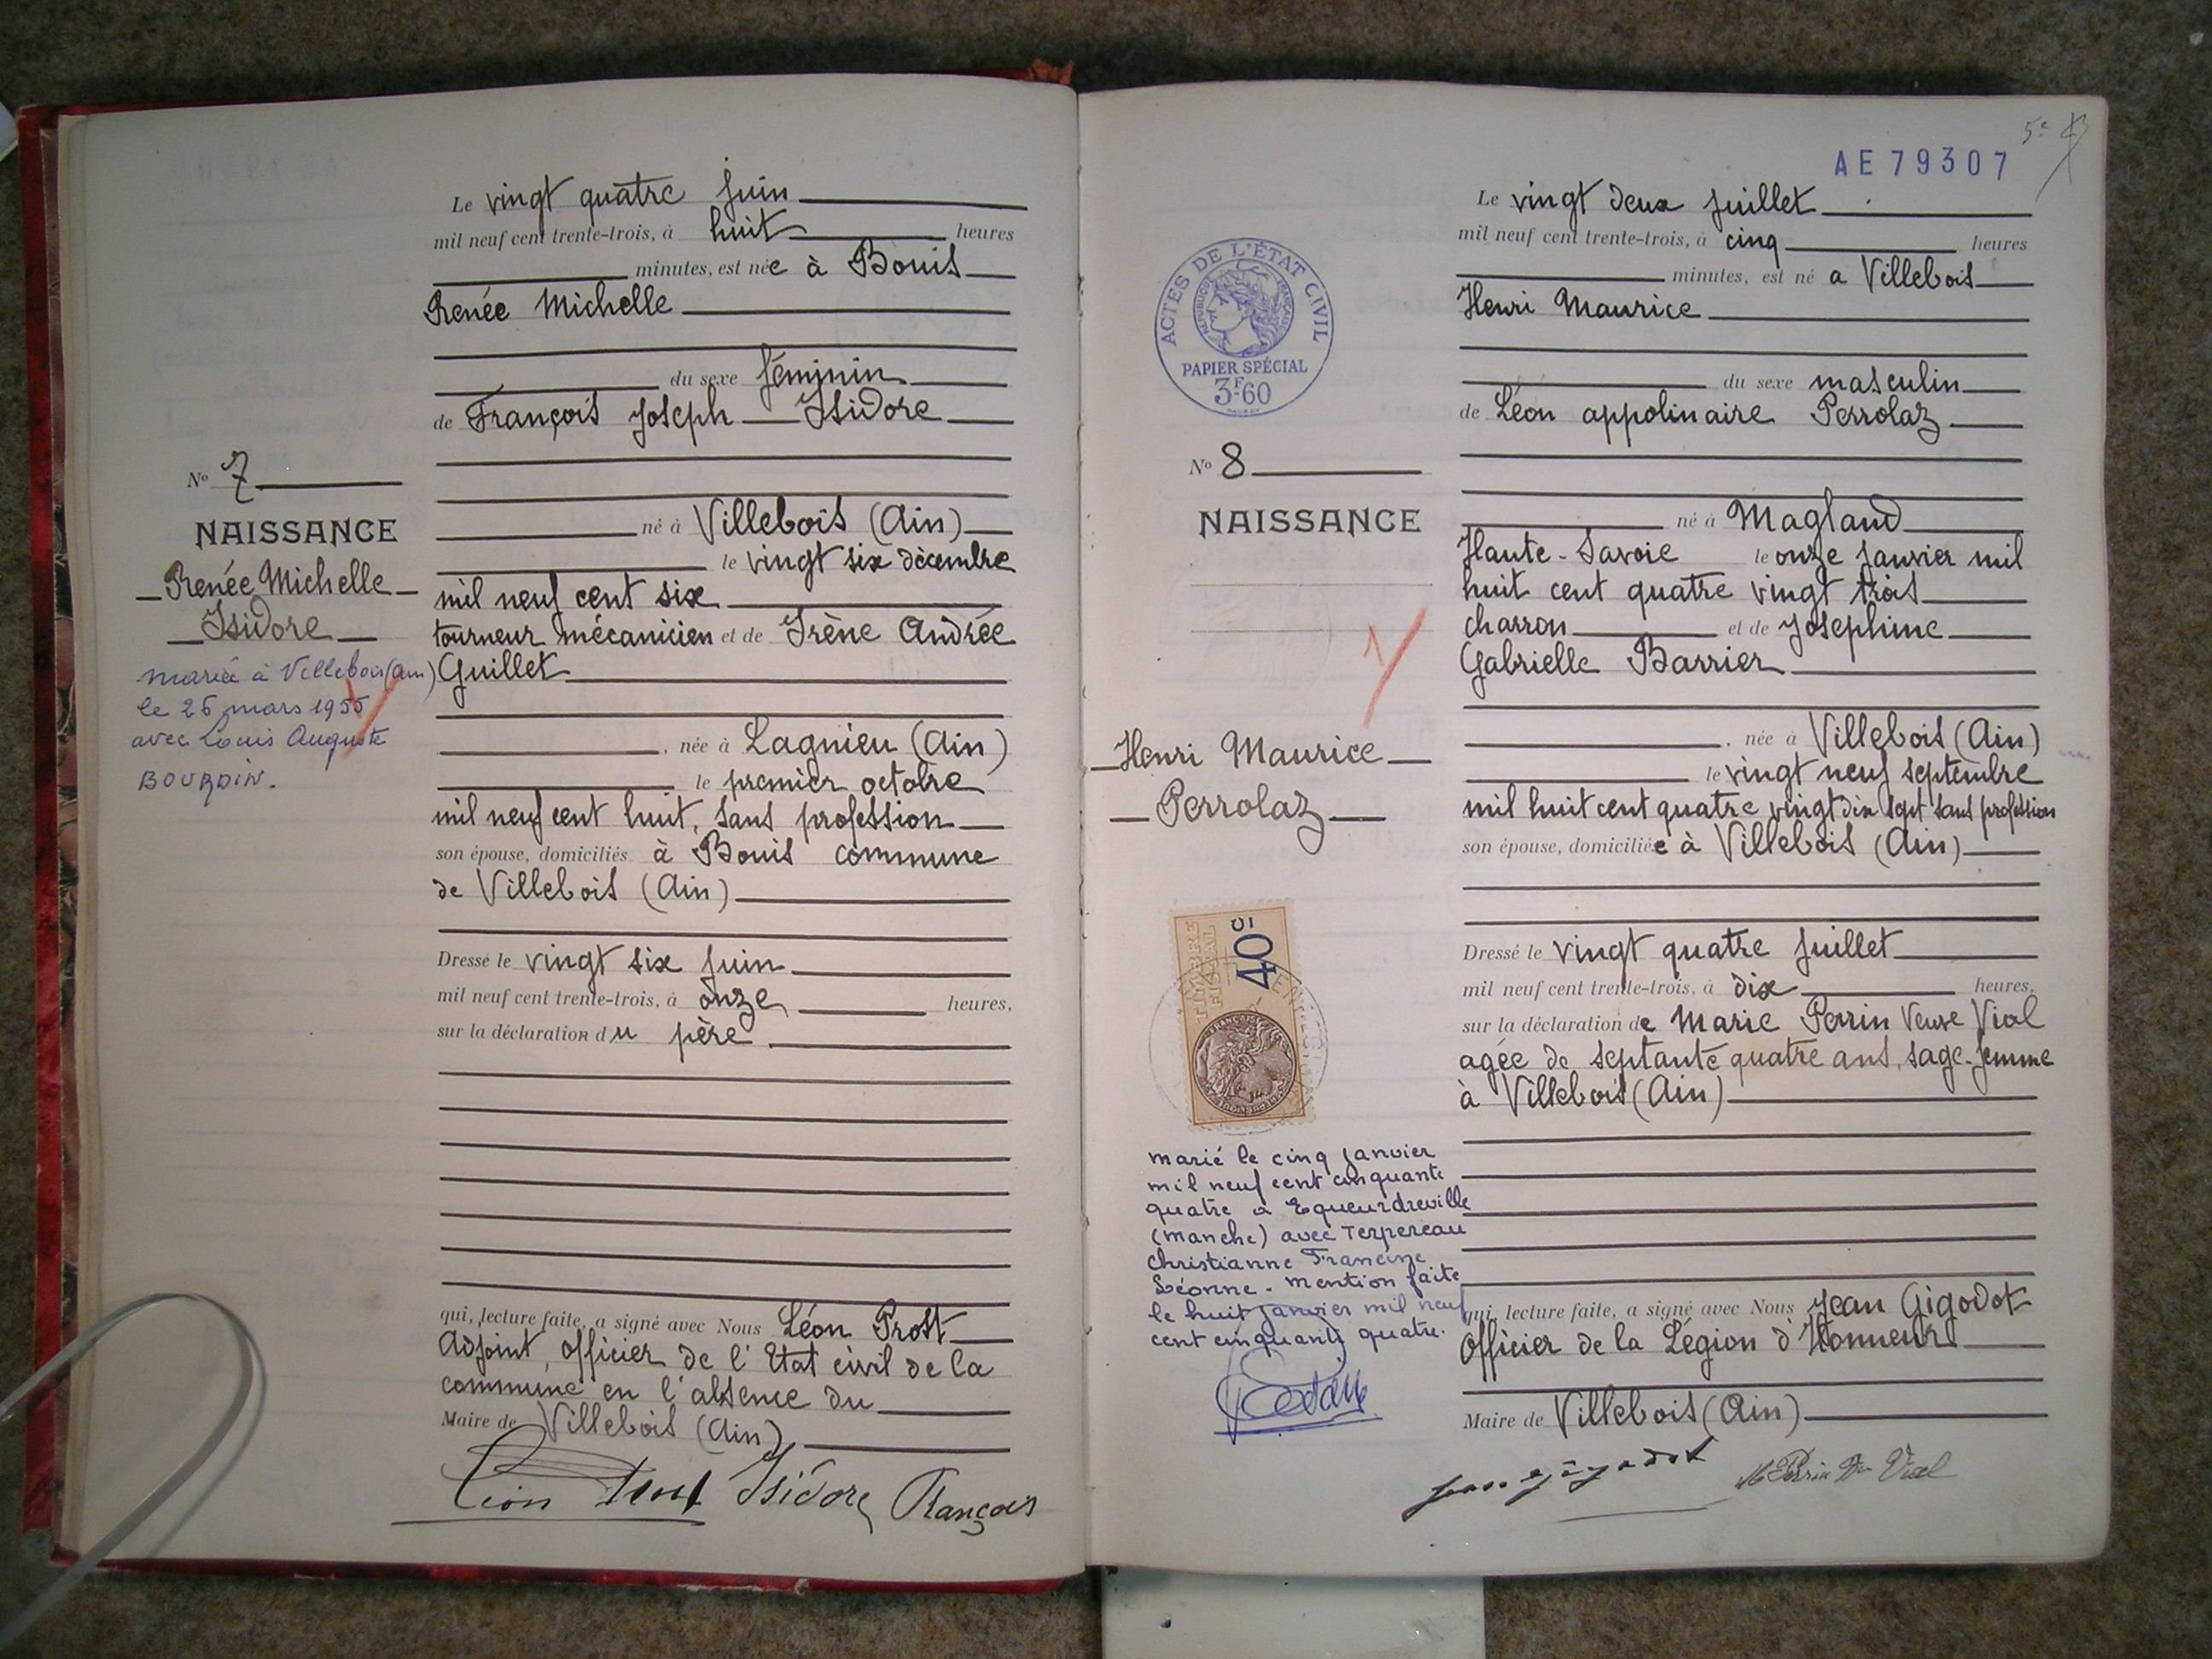 Le vingt quatre juin
mil neuf cent trente-trois, à huit heures
minutes, est née à Bouis
Renée Michelle
du sexe féminin
de François Joseph Isidore
né à Villebois (Ain)
le vingt six décembre
mil neuf cent six
tourneur mécanicien et de Irène Andrée
Guillet
, née à Lagnieu (Ain)
le premier octobre
mil neuf cent huit, sans profession
son épouse, domiciliés à Bouis commune
de Villebois (Ain)
Dressé le vingt six juin
mil neuf cent trente-trois, à onze heures,
sur la déclaration du père
qui, lecture faite, a signé avec Nous Léon Prost
Adjoint, officier de l'Etat civil de la
commune en l'absence du
Maire de Villebois (Ain)
Léon Prost Isidore François
No 7
NAISSANCE
Renée Michelle
Isidore
mariée à Villebois (Ain)
le 26 mars 1955
avec Louis Auguste
BOURDIN.
5e
AE 79307
Le vingt deux juillet
mil neuf cent trente-trois, à cinq heures
minutes, est né a Villebois
Henri Maurice
du sexe masculin
de Léon appolinaire Perrolaz
né à Magland
Haute-Savoie le onze janvier mil
huit cent quatre vingt trois
charron et de Josephine
Gabrielle Barrier
, née à Villebois (Ain)
le vingt neuf septembre
mil huit cent quatre vingt dix sept sans profession
son épouse, domiciliée à Villebois (Ain)
Dressé le vingt quatre juillet
mil neuf cent trente-trois, à dix heures,
sur la déclaration de Marie Perrin Veuve Vial
agée de septante quatre ans, sage-femme
à Villebois (Ain)
qui, lecture faite, a signé avec Nous Jean Gigodot
Officier de la Légion d'Honneur
Maire de Villebois (Ain)
Jean Gigodot M Perrin Vve Vial
ACTES DE L'ÉTAT CIVIL
RÉPUBLIQUE FRANÇAISE
PAPIER SPÉCIAL
3F60
No 8
NAISSANCE
1
Henri Maurice
Perrolaz
TIMBRE
FISCAL
40c
marié le cinq janvier
mil neuf cent cinquante
quatre à Equeurdreville
(manche) avec Terpereau
Christianne Francine
Léonne. mention faite
le huit janvier mil neuf
cent cinquante quatre.